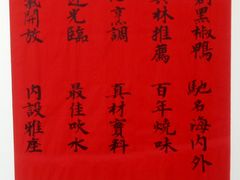 黑椒鴨 馳名海內外
林推薦 百年燒味
烹調 真材實料
光臨 最佳吹水
開放 內設雅座